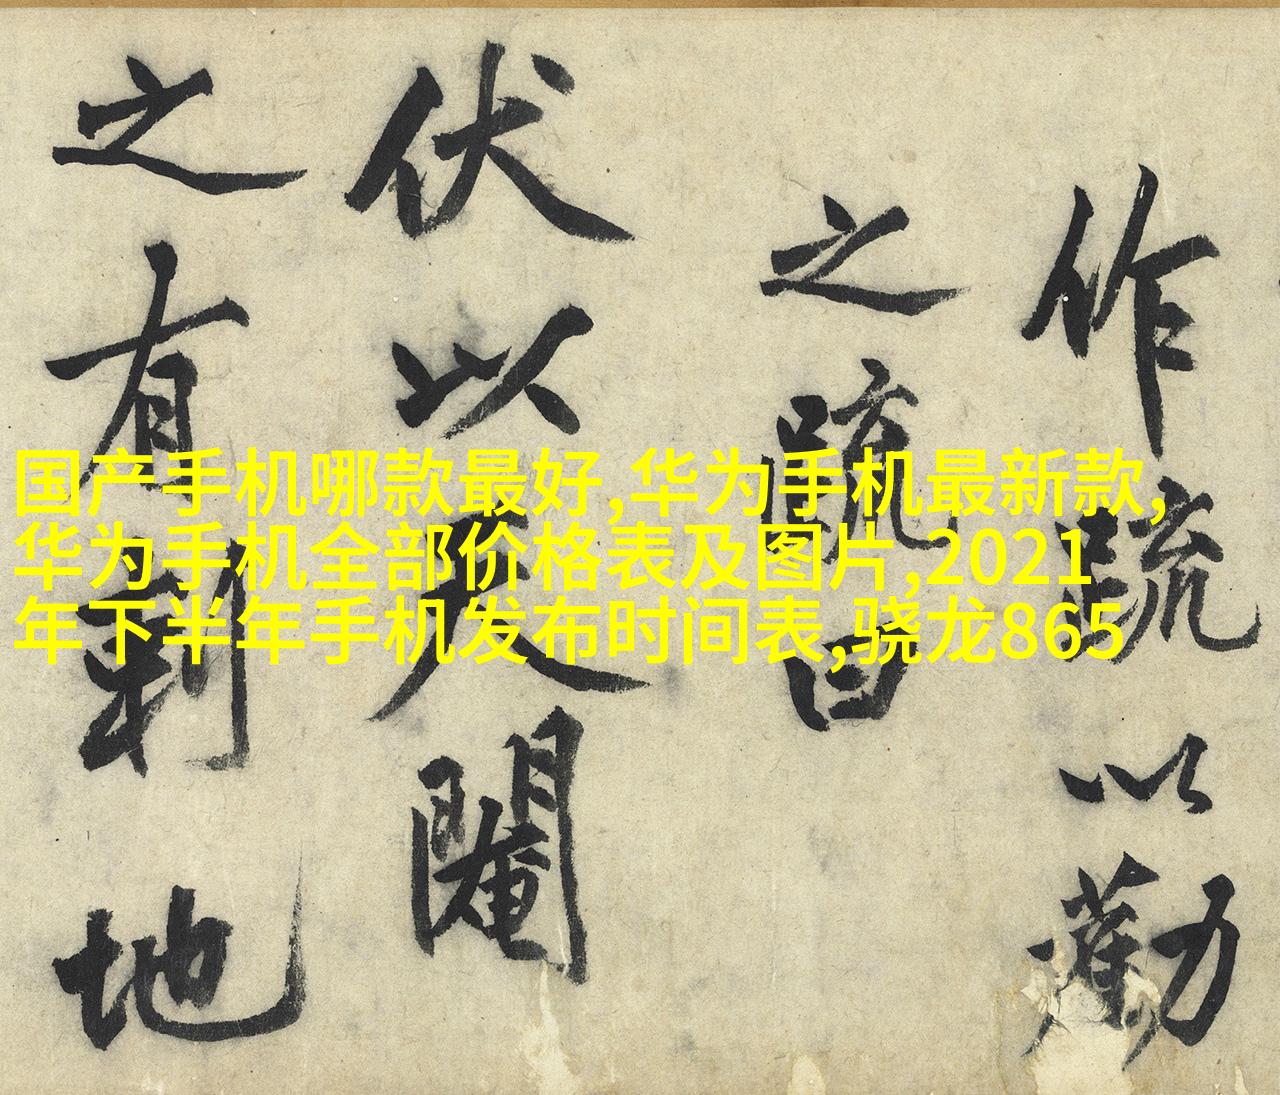 国产手机哪款最好,华为手机最新款,
华为手机全部价格表及图片,2021
年下半年手机发布时间表,骁龙865
作疏以勸
之疏曰
伏以天閹
之有刺地